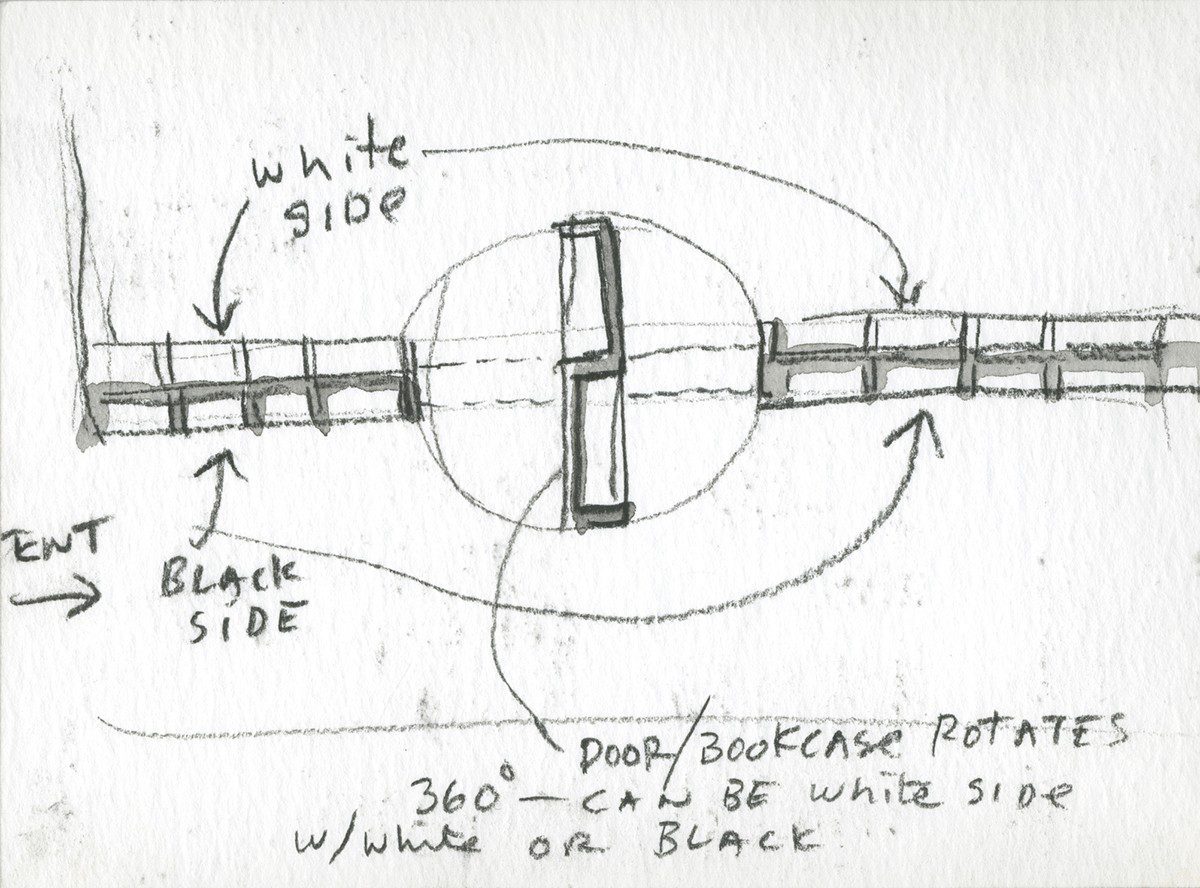 white
SIDE
ENT
BLACK
SIDE
DOOR/BOOKCASE ROTATES
360° — CAN BE white SIDE
w/white OR BLACK